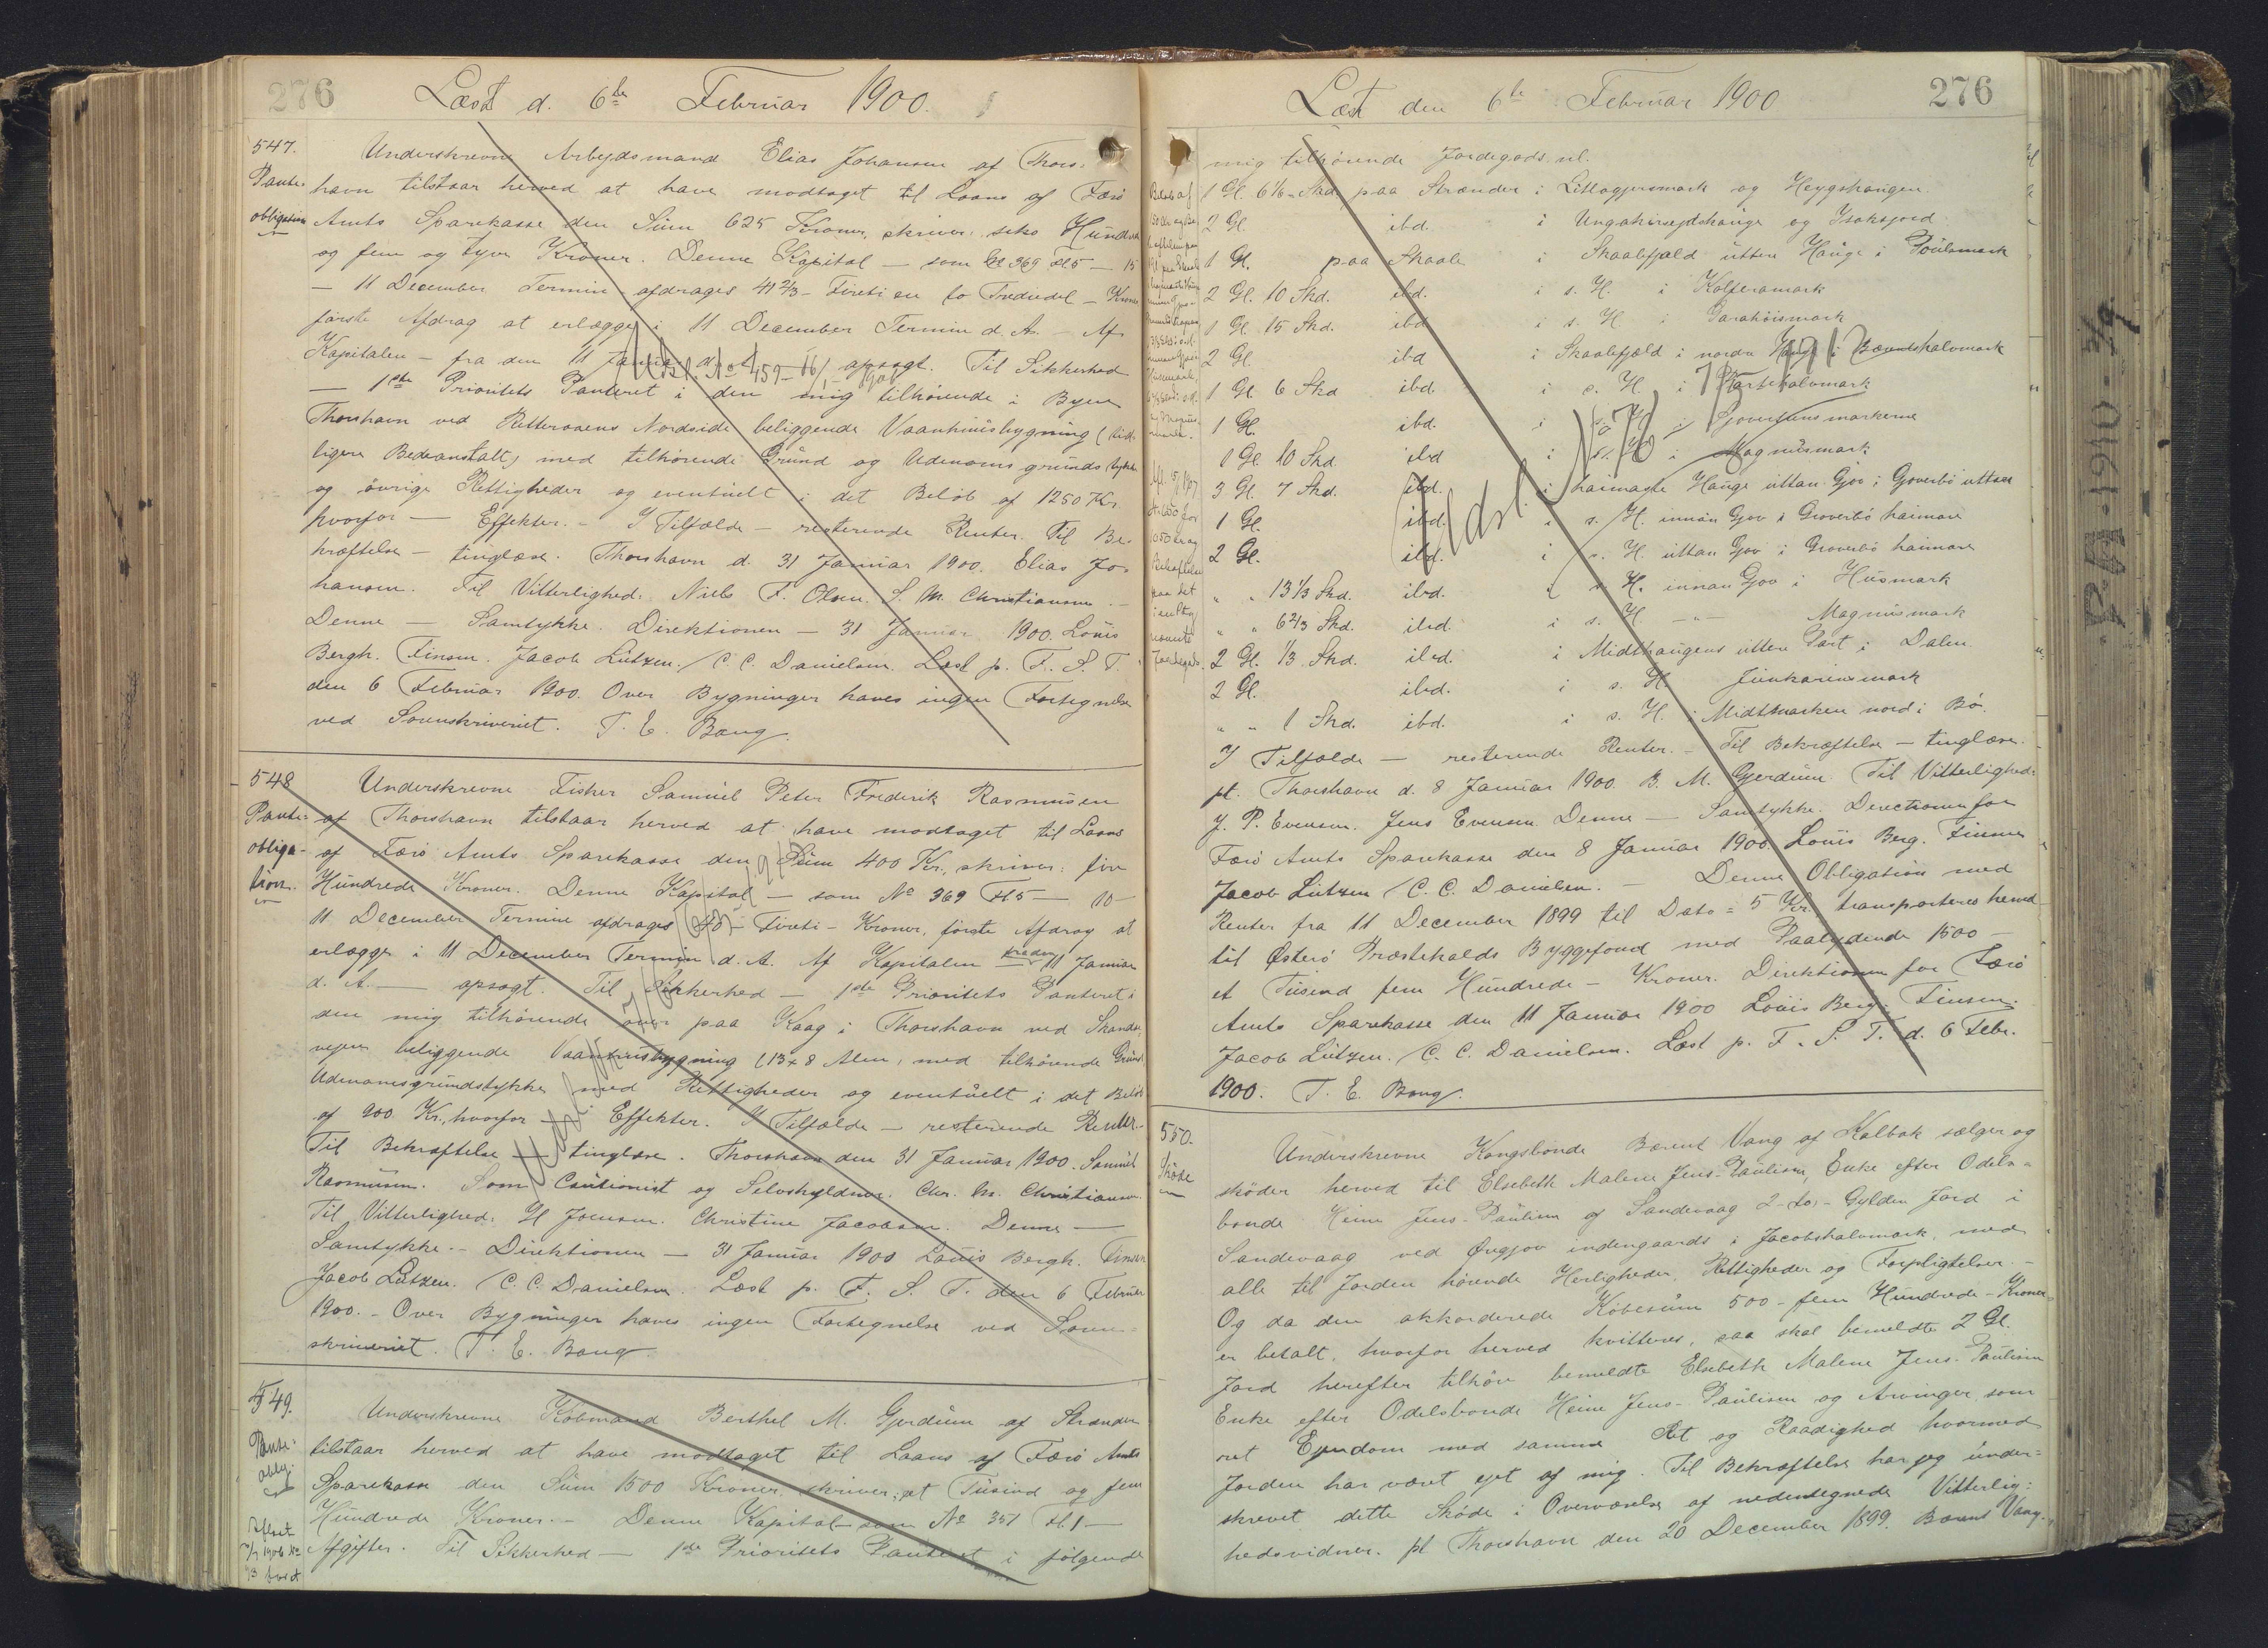 276
Læst d. 6te Februar 1900.
547.
Pante-
obligation
Underskrevne Arbejdsmand Elias Johansen af Thors-
havn tilstaar herved at have modtaget til Laans af Færø
Amts Sparekasse den Sum 625 Kroner, skriver seks Hundrede
og fem og tyve Kroner. Denne Kapital — som No 369 H5 — 15
— 11 December Termin afdrages 41 2/3 - Fireti en to Trediedel - Kroner
første Afdrag at erlægge i 11 December Termin d. A. — Af
Kapitalen — fra den 11 Januar d. A. — opsagt. Til Sikkerhed
— 1ste Prioritets Panteret i den mig tilhørende i Byen
Thorshavn ved Retteraaens Nordside beliggende Vaanhuusbygning (tid-
ligere Badeanstalt) med tilhørende Grund og Udenomsgrundstykke
og øvrige Rettigheder og eventuelt i det Beløb af 1250 Kr.
hvorfor — Effekter. — I Tilfælde — resterende Renter. Til Be-
kræftelse — tinglæse. Thorshavn d. 31 Januar 1900. Elias Jo-
hansen. Til Vitterlighed: Niels F. Olsen. S. M. Christiansen. —
Denne — Samtykke. Direktionen — 31 Januar 1900. Louis
Bergh. Finsen. Jacob Lützen. / C. C. Danielsen. Læst p. F. S. T.
den 6 Februar 1900. Over Bygninger haves ingen Fortegnelse
ved Sorenskriveriet. T. E. Bang.
548
Pante-
obliga-
tion.
Underskrevne Fisker Samuel Peter Frederik Rasmussen
af Thorshavn tilstaar herved at have modtaget til Laans
af Færø Amts Sparekasse den Sum 400 Kr., skriver: fire
Hundrede Kroner. Denne Kapital — som No 369 H5 — 10 —
11 December Termin afdrages 40 - Fireti - Kroner, første Afdrag at
erlægge i 11 December Termin d. A. Af Kapitalen 11 Januar
d. A. — opsagt. Til Sikkerhed — 1ste Prioritets Panteret i
den mig tilhørende over paa Kaag i Thorshavn ved Skandse-
vejen beliggende Vaanhuusbygning (13 x 8 Alen, med tilhørende Grund
Udenomsgrundstykke med Rettigheder og eventuelt i det Beløb
af 900 Kr., hvorfor — Effekter. I Tilfælde — resterende Renter. —
Til Bekræftelse — tinglæse. Thorshavn den 31 Januar 1900. Samuel
Rasmussen. Som Cautionist og Selvskyldner. Chr. M. Christiansen.
Til Vitterlighed: H Joensen. Christine Jacobsen. Denne —
Samtykke. — Direktionen — 31 Januar 1900 Louis Bergh. Finsen
Jacob Lützen. / C. C. Danielsen. Læst p. F. S. T. den 6 Februar
1900. — Over Bygninger haves ingen Fortegnelse ved Soren-
skriveriet. T. E. Bang
549.
Pante-
oblig.
Underskrevne Købmand Berthel M. Gjerdum af Strænder
tilstaar herved at have modtaget til Laans af Færø Amts
Sparekasse den Sum 1500 Kroner, skriver: et Tusind og fem
Hundrede Kroner. — Denne Kapital — som No 351 H1 —
Afgifter. Til Sikkerhed — 1ste Prioritets Panteret i følgende
Læst den 6te Februar 1900
276
mig tilhørende Jordegods, nl.
1 Gl. 6 1/6 Skd. paa Strænder i Littagjersmark og Heygshaugen.
2 Gl. ibd. i Ungakirejdshauge og Isaksjord
1 Gl. paa Skaale i Skaalefjæld utten Hauge i Poulsmark
2 Gl. 10 Skd. ibd. i s. H. i Kolferamark
1 Gl. 15 Skd. ibd i s. H. i Garahúismark
2 Gl. ibd i Skaalefjæld i nordre Hauge i Bærentshalvmark
1 Gl. 6 Skd ibd i s. H. i
1 Gl. ibd. i s. H. i
1 Gl. 10 Skd. ibd i s. H. i Magnusmark
3 Gl. 7 Skd. ibd. i haimaste Hauge uttan Gjov i Gjoverbø uttan
1 Gl. ibd. i s. H. innan Gjov i Groverbø haimare
2 Gl. ibd. i s. H. uttan Gjov i Groverbø haimare
" " 13 1/3 Skd. ibd. i s. H. innan Gjov i Husmark
" " 6 2/3 Skd. ibd. i s. H. — " — Magnusmark
2 Gl. 1/3 Skd. ibd. i Midthaugens uttere Part i Dalen
2 Gl. ibd. i s. H. Junkarinsmark
" " 1 Skd. ibd. i s. H. i Midtmarken nord i Bø.
I Tilfælde — resterende Renter. — Til Bekræftelse — tinglæse.
pt. Thorshavn d. 8 Januar 1900. B. M. Gjerdum. Til Vitterlighed:
J. P. Evensen. Jens Evensen. Denne — Samtykke. Directionen for
Færø Amts Sparekasse den 8 Januar 1900. Louis Berg. Finsen
Jacob Lützen / C. C. Danielsen. — Denne Obligation med
Renter fra 11 December 1899 til Dato = 5 Kr. transporteres herved
til Østerø Præstekalds Byggefond med Paalydende 1500 —
et Tusind fem Hundrede — Kroner. Direktionen for Færø
Amts Sparekasse den 11 Januar 1900 Louis Berg. Finsen.
Jacob Lützen. / C. C. Danielsen. Læst p. F. S. T. d. 6 Febr.
1900. T. E. Bang.
550.
Skøde
Underskrevne Kongsbonde Bærent Vang af Kalbak sælger og
skøder herved til Elsebeth Malene Jens-Paulisen, Enke efter Odels-
bonde Heine Jens-Paulisen af Sandevaag 2 - to - Gylden Jord i
Sandevaag ved Øvgjov indengaards i Jacobshalvmark, med
alle til Jorden hørende Herligheder, Rettigheder og Forpligtelser. —
Og da den akkorderede Købesum 500 - fem Hundrede - Kroner
er betalt, hvorfor herved kvitteres, saa skal bemeldte 2 Gl.
Jord herefter tilhøre bemeldte Elsebeth Malene Jens-Paulisen
Enke efter Odelsbonde Heine Jens-Paulisen og Arvinger som
ret Ejendom med samme Ret og Raadighed hvormed
Jorden har været ejet af mig. Til Bekræftelse har jeg under-
skrevet dette Skøde i Overværelse af nedentegnede Vitterlig-
hedsvidner. pt Thorshavn den 20 December 1899. Bærent Vang.